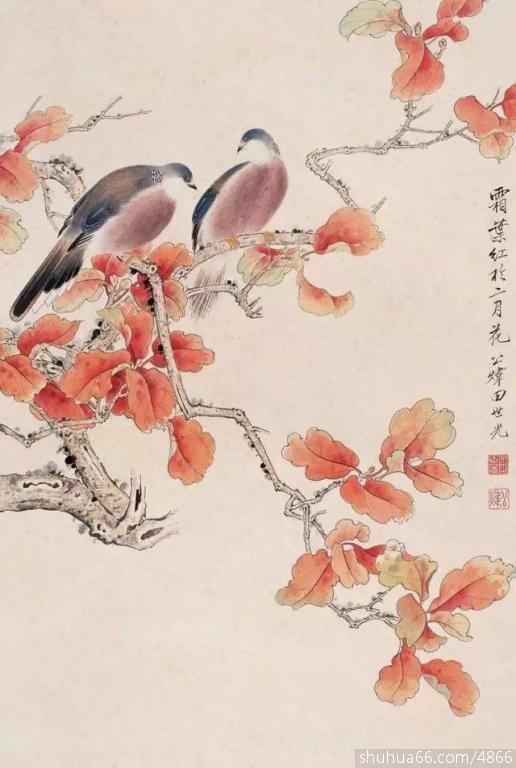 霜葉红於二月花 公煒田世光
shuhua66.com/4866